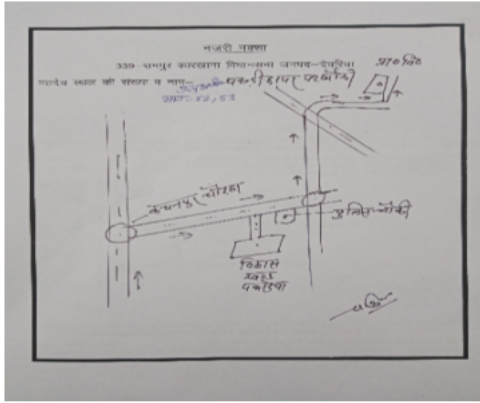 नजरी नक्शा
339-रामपुर कारखाना विधानसभा जनपद-देवरिया
मतदेय स्थल की संख्या व नाम-
52, 53
प्रा० वि०
कंचनपुर चौराहा
पुलिस चौकी
विकास
खण्ड